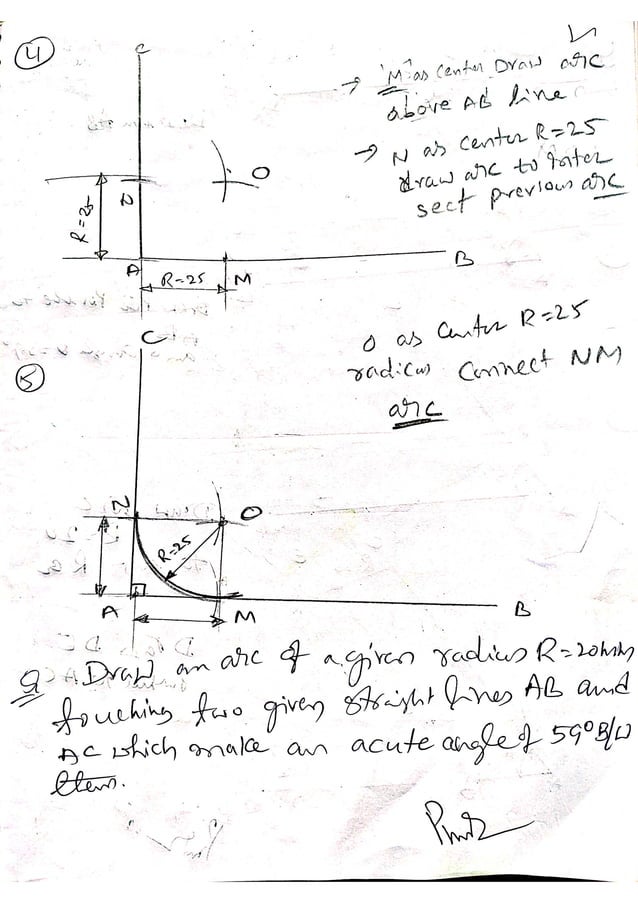 4
C
→ "M" as Center Draw arc
above AB line
→ N as center R=25
draw arc to inter
sect previous arc
O
N
R=25
A
R=25
M
B
O as Center R=25
radius Connect NM
arc
5
C
N
O
R=25
A
M
B
Q Draw an arc of a given radius R=20mm
touching two given straight lines AB and
AC which make an acute angle of 59° B/W
them.